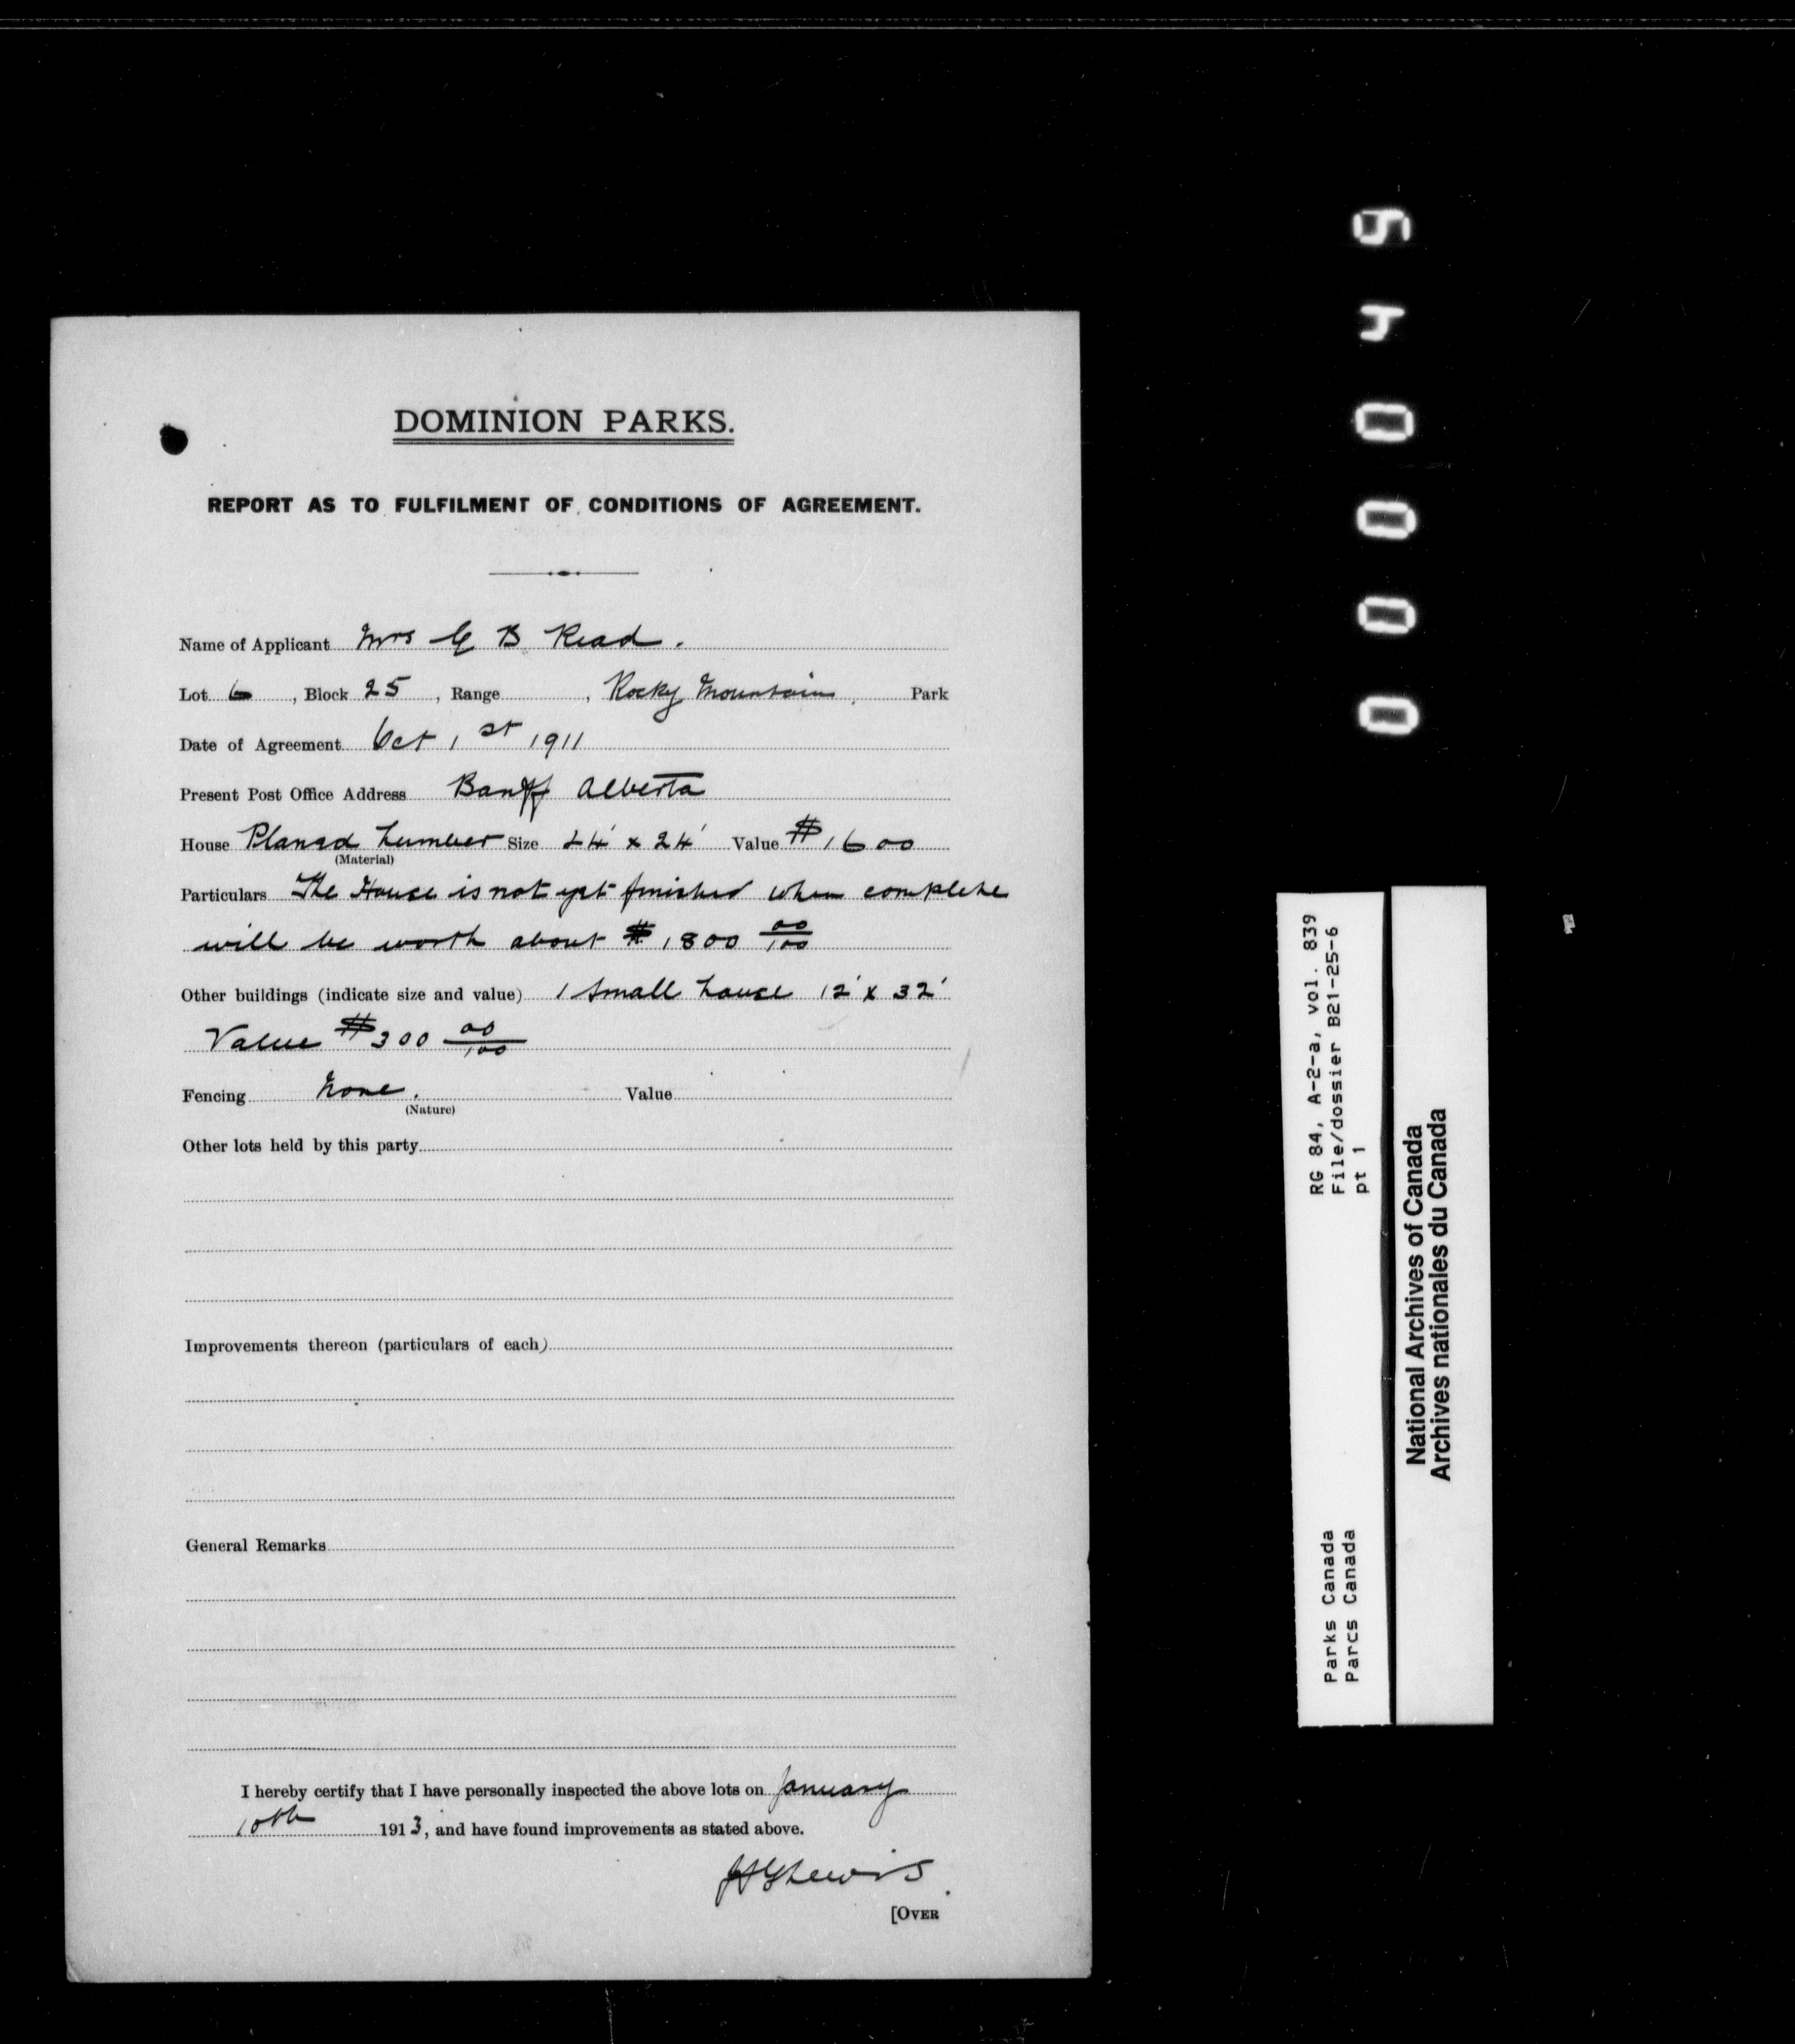 DOMINION PARKS.
REPORT AS TO FULFILMENT OF CONDITIONS OF AGREEMENT.
Name of Applicant Mrs C B Read.
Lot 6, Block 25, Range , Rocky Mountains. Park
Date of Agreement Oct 1st 1911
Present Post Office Address Banff Alberta
House Planed Lumber Size 24' x 24' Value $1600
(Material)
Particulars The House is not yet finished when complete
will be worth about $1800 00/100
Other buildings (indicate size and value) 1 small house 12' x 32'
Value $300 00/100
Fencing None. Value
(Nature)
Other lots held by this party
Improvements thereon (particulars of each)
General Remarks
I hereby certify that I have personally inspected the above lots on January
10th 1913, and have found improvements as stated above.
Lewis
[OVER
000045
RG 84, A-2-a, vol. 839
File/dossier B21-25-6
pt 1
Parks Canada
Parcs Canada
National Archives of Canada
Archives nationales du Canada